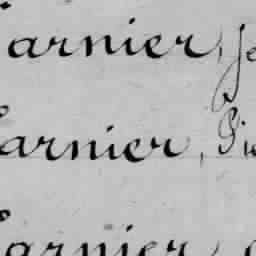 arnier, Je
arnier, Pie
arnier